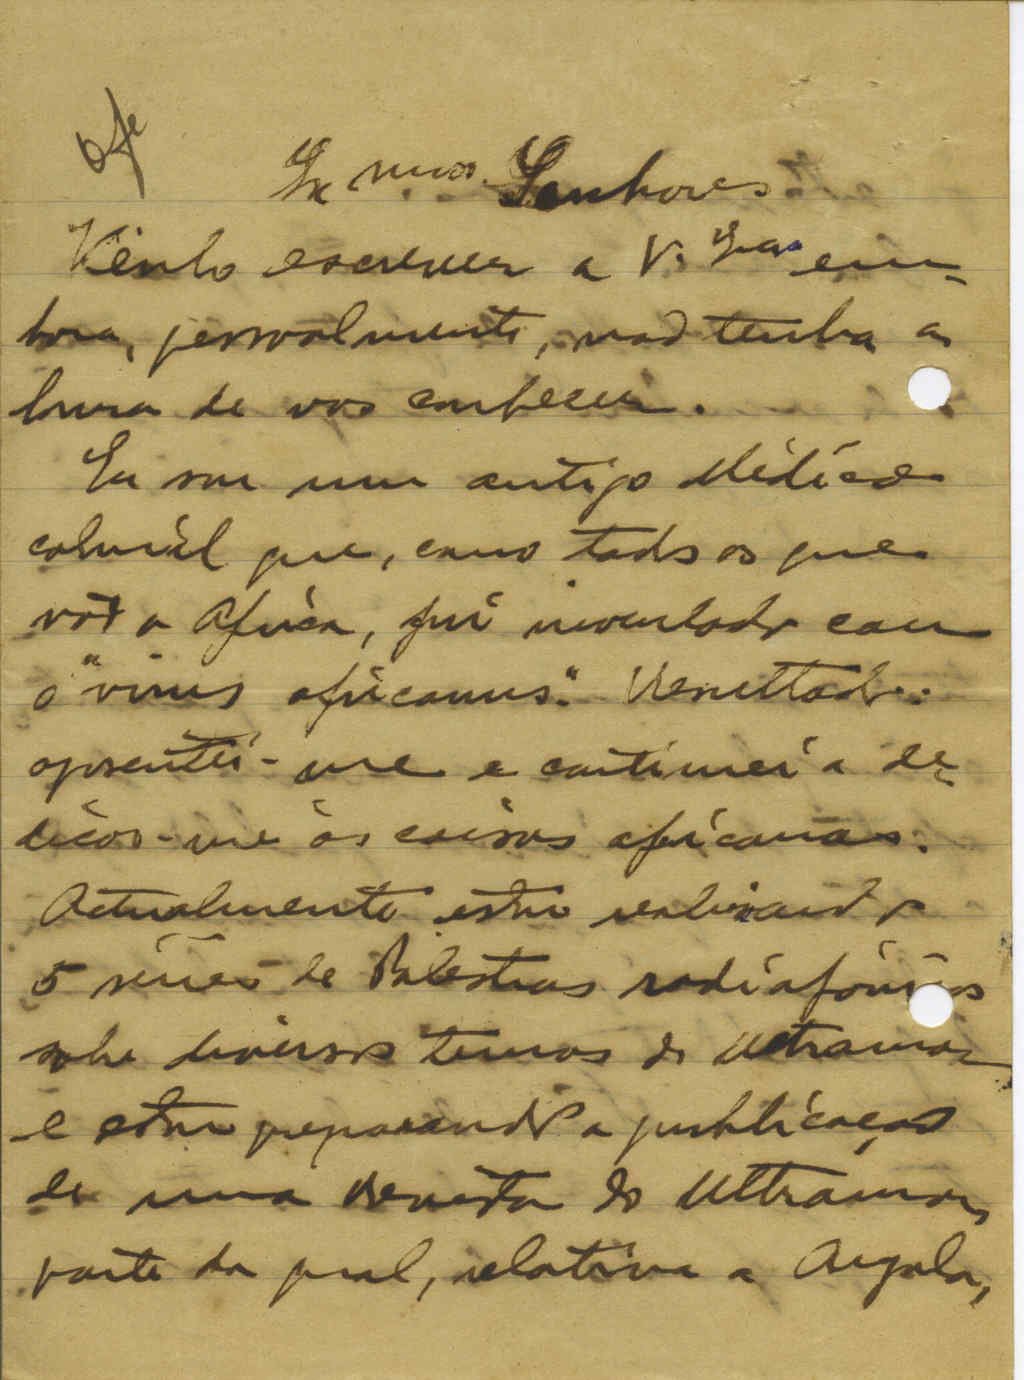 Ex.mos Senhores
Venho escrever a V. Exas em-
bora, pessoalmente, não tenha a
honra de vos conhecer.
Eu sou um antigo Médico
colonial que, como todos os que
vão a Africa, fui inoculado com
o "virus africanus". Resultado:
aposentei-me e continuei a de-
dicar-me ás coisas africanas.
Actualmente estou realizando
5 séries de Palestras radiofónicas
sobre diversos temas do Ultramar
e estou preparando a publicação
de uma Revista do Ultramar,
parte da qual, relativa a Angola,